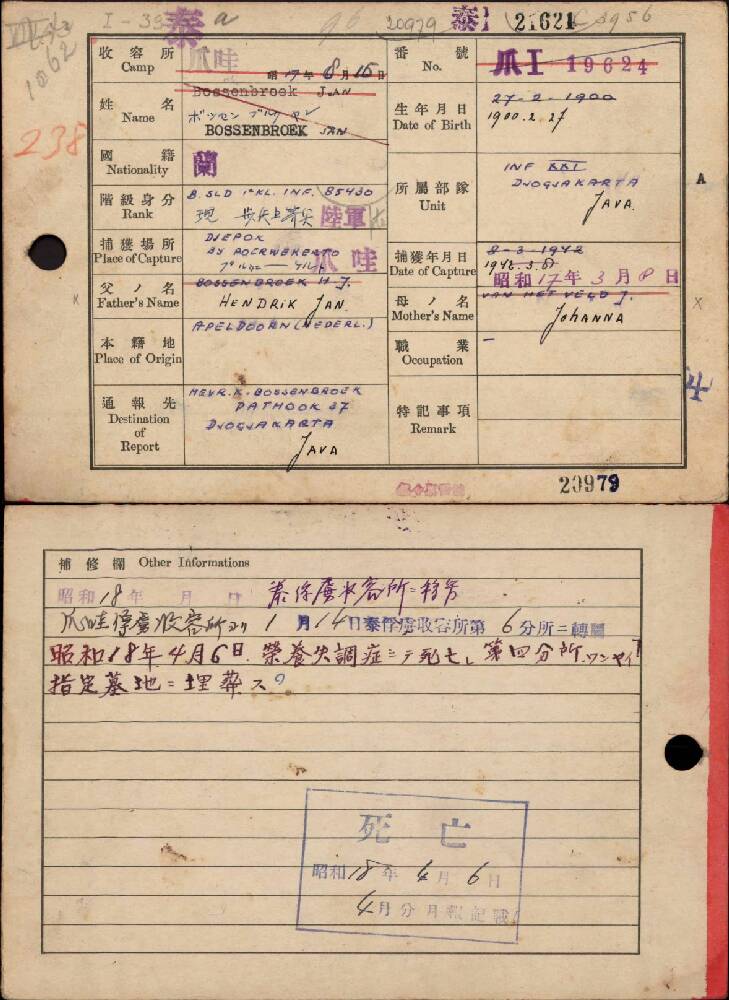 I-33 秦 a 20979 秦I 21621 3956
1062
238
收容所 Camp 爪哇 昭17年8月15日 番號 No. 爪I 19624
姓名 Name Bossenbroek JAN
ボッセンブルック ヤン
BOSSENBROEK JAN
生年月日 Date of Birth 27-2-1900
1900.2.27
國籍 Nationality 蘭
所屬部隊 Unit INF XXI
DJOGJAKARTA
JAVA
A
階級身分 Rank B. SLD 1e KL. INF. 85430
現 陸軍
捕獲場所 Place of Capture DJEPOK
BY POERWEKERTO
爪哇
捕獲年月日 Date of Capture 8-3-1942
1942.3.8
昭和17年3月8日
父ノ名 Father's Name BOSSENBROEK H J.
HENDRIK JAN.
母ノ名 Mother's Name VAN HET VELD J.
JOHANNA
X
X
本籍地 Place of Origin APELDOORN (NEDERL.)
職業 Occupation -
通報先 Destination of Report MEVR. K. BOSSENBROEK
PATHOOK 37
DJOGJAKARTA
JAVA
特記事項 Remark
4
20979
補修欄 Other Informations
昭和18年 月 日 泰俘虜收容所ニ移管
爪哇俘虜收容所ヨリ 1月14日泰俘虜收容所第6分所ニ轉屬
昭和18年4月6日 榮養失調症ニテ死亡シ 第四分所
指定墓地ニ埋葬ス。
死亡
昭和18年4月6日
4月分月報記載